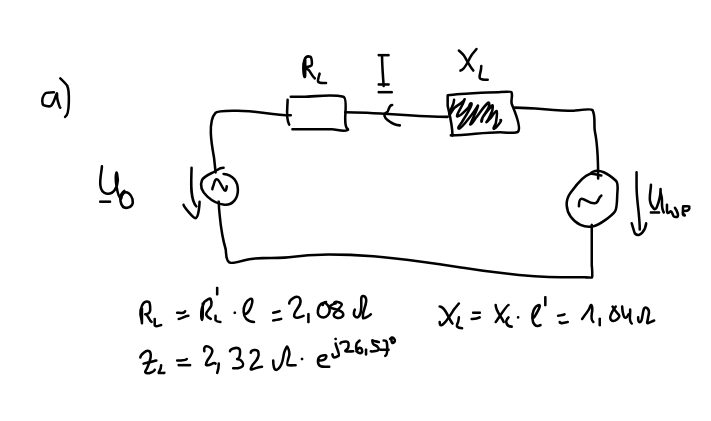 a)
R_L
I
X_L
U_0
U_WP
R_L = R_L' · l = 2,08 Ω
X_L = X_L · l' = 1,04 Ω
Z_L = 2,32 Ω · e^j26,57°